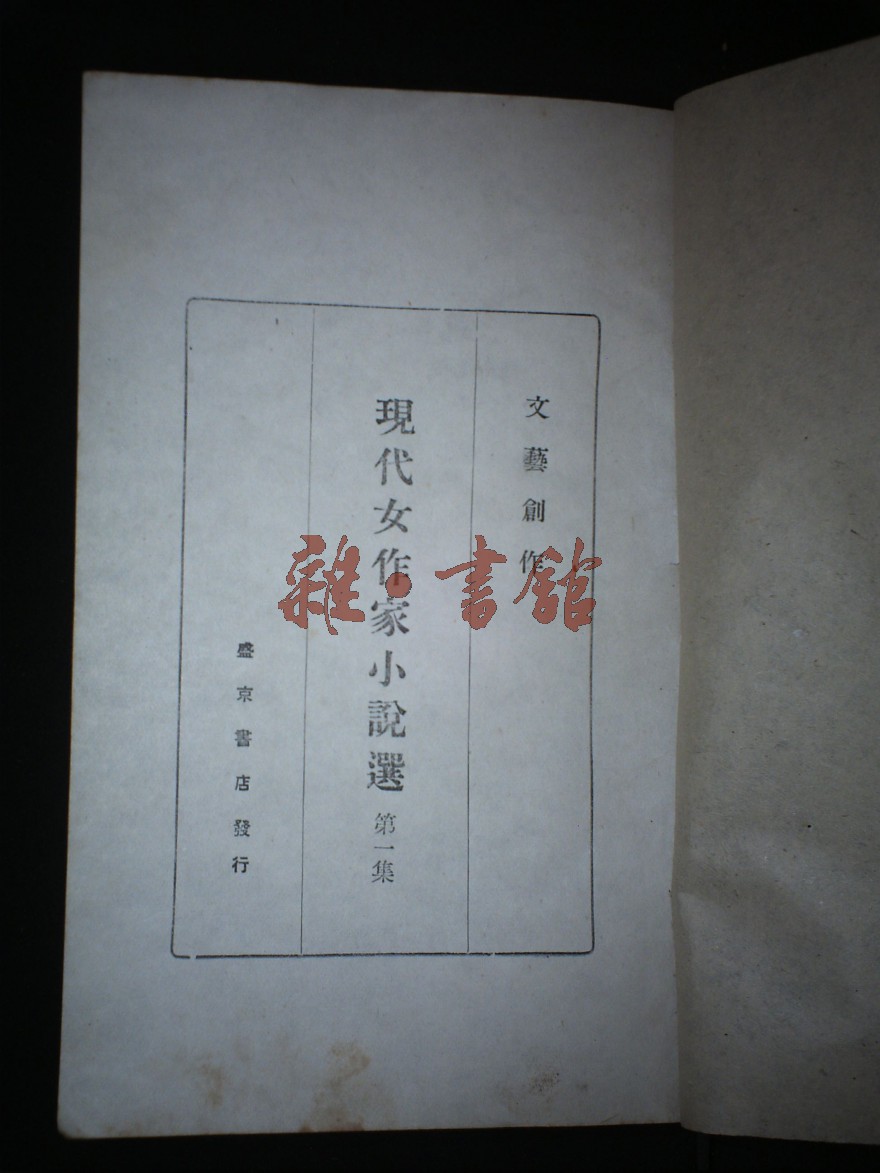 文藝創作
現代女作家小說選 第一集
盛京書店發行
雜·書館